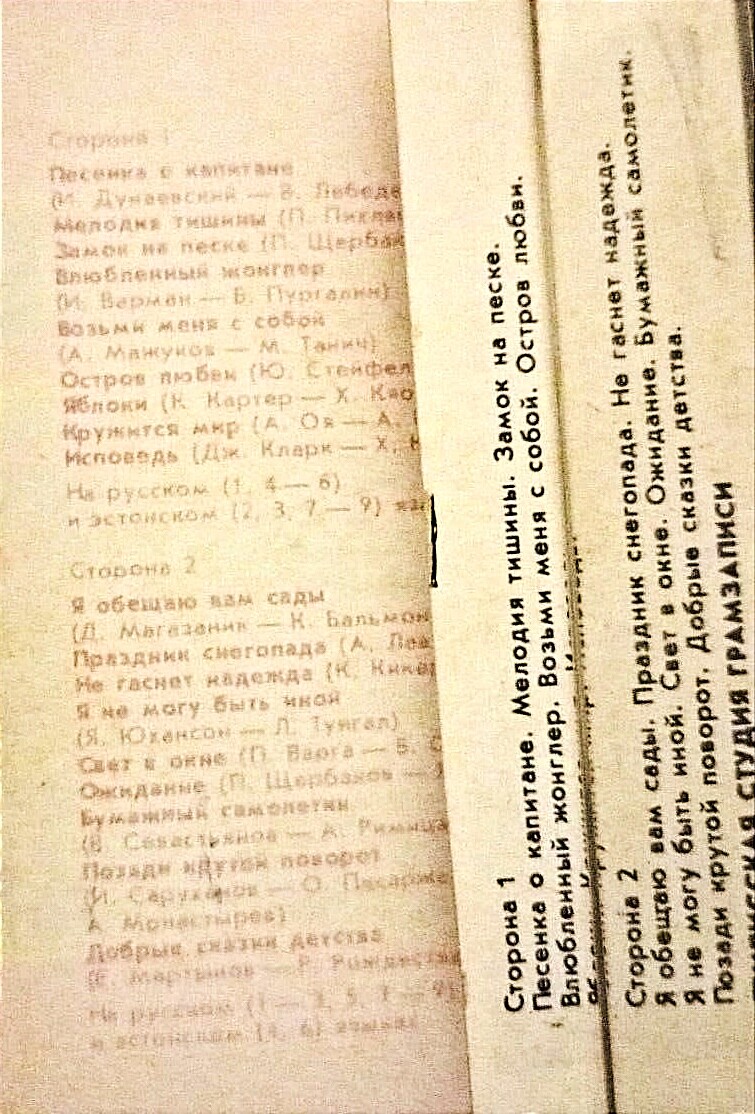 Сторона 1
Песенка о капитане
(И. Дунаевский — В. Лебеде
Мелодия тишины (П.
Замок на песке (П. Щербак
Влюбленный жонглер
(И. Верман — Б. Пургалин)
Возьми меня с собой
(А. Мажуков — М. Танич)
Остров любви (Ю. Стейфел
Яблоки (К. Картер — Х.
Кружится мир (А. Оя — А.
Исповедь (Дж. Кларк — Х.
На русском (1, 4 — 6)
и эстонском (2, 3, 7 — 9)
Сторона 2
Я обещаю вам сады
(Д. Магазаник — К. Бальмон
Праздник снегопада (А.
Не гаснет надежда (К. Кикер
Я не могу быть иной
(Я. Юхансон — Л. Тунгал)
Свет в окне (П. Варга — Б.
Ожидание (П. Щербаков —
Бумажный самолетик
(В. Севастьянов — А. Римица
Позади крутой поворот
(И. Саруханов — О. Писарже
А. Монастырев)
Добрые сказки детства
(Е. Мартынов — Р. Рождеств
На русском (1 — 3, 5, 7 — 9)
и эстонском (4, 6) языках
Сторона 1
Песенка о капитане. Мелодия тишины. Замок на песке.
Влюбленный жонглер. Возьми меня с собой. Остров любви.
Сторона 2
Я обещаю вам сады. Праздник снегопада. Не гаснет надежда.
Я не могу быть иной. Свет в окне. Ожидание. Бумажный самолетик.
Позади крутой поворот. Добрые сказки детства.
СТУДИЯ ГРАМЗАПИСИ